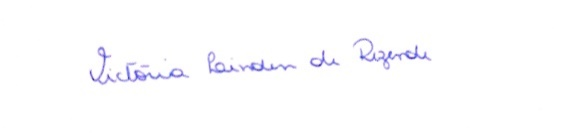 Victória Lainden de Rezende